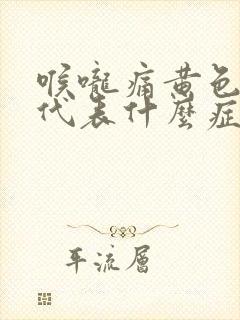 喉嚨痛黃色
代表什麼症
平流層